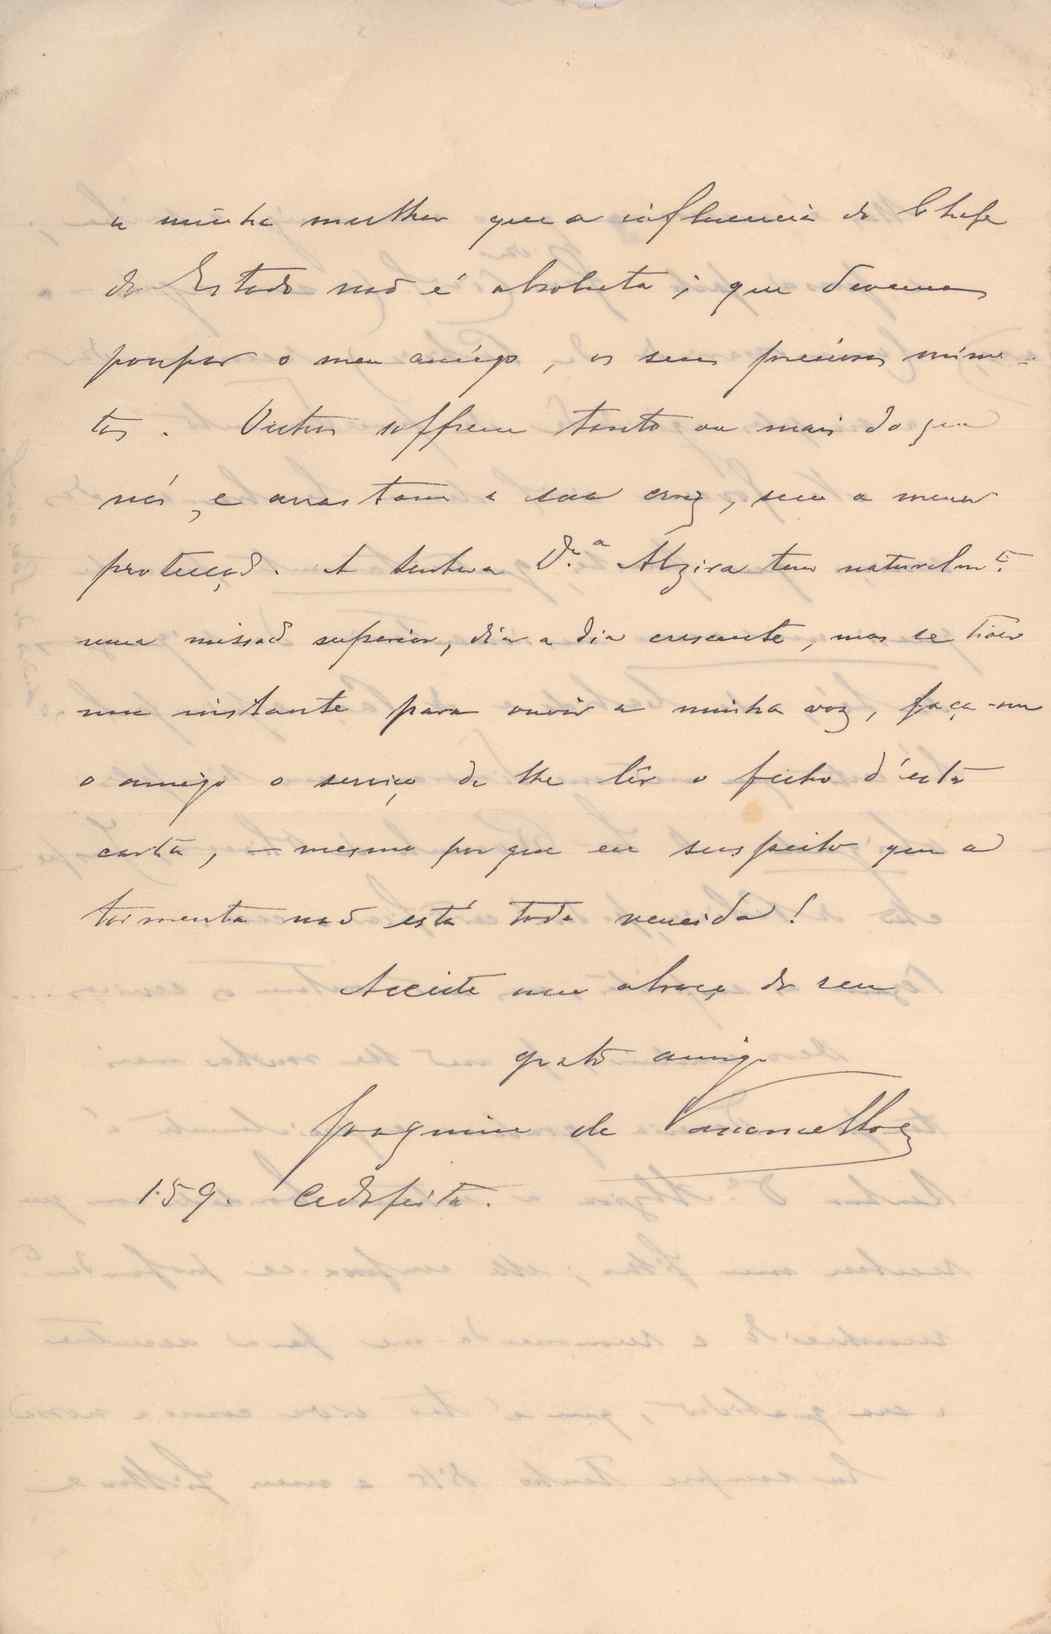 a minha mulher que a influencia do Chefe
do Estado naõ é absoluta; que devemos
poupar o meu amigo, os seus preciosos minu-
tos. Outros soffrem tanto ou mais do que
nós, e arrastam a sua cruz, sem a menor
protecçaõ. A Senhora D.ª Alzira tem naturalm.te
uma missaõ superior, dia a dia crescente, mas se tiver
um instante para ouvir a minha voz, faça-me
o amigo o serviço de lhe lêr o fecho d'esta
carta, – mesmo porque eu suspeito que a
tormenta naõ está toda vencida!
Acceite um abraço do seu
grato amigo
Joaquim de Vasconcellos
159. Cedofeita.